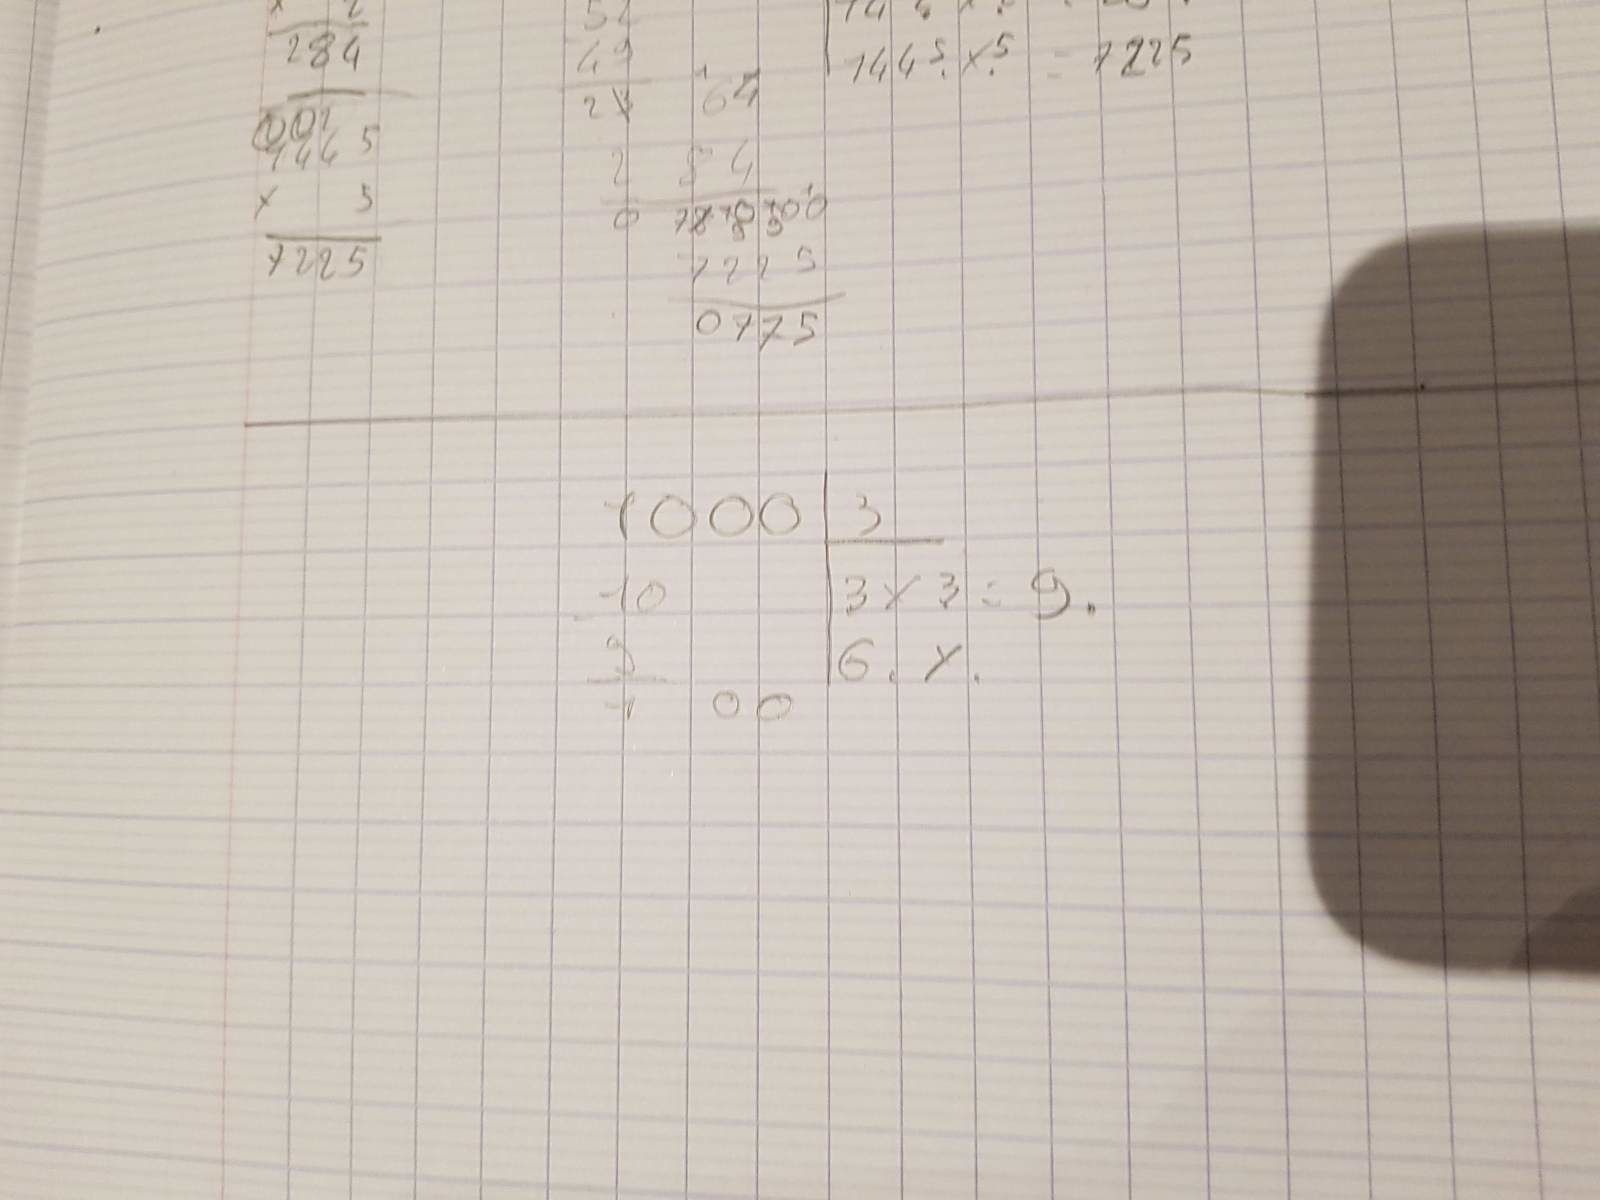 x 2
284
1445
x 5
7225
52
49
64
2 8 4
7225
0775
1445. x 5. = 7225
1000 3
10 3 x 3 = 9.
9 6. x.
1 00